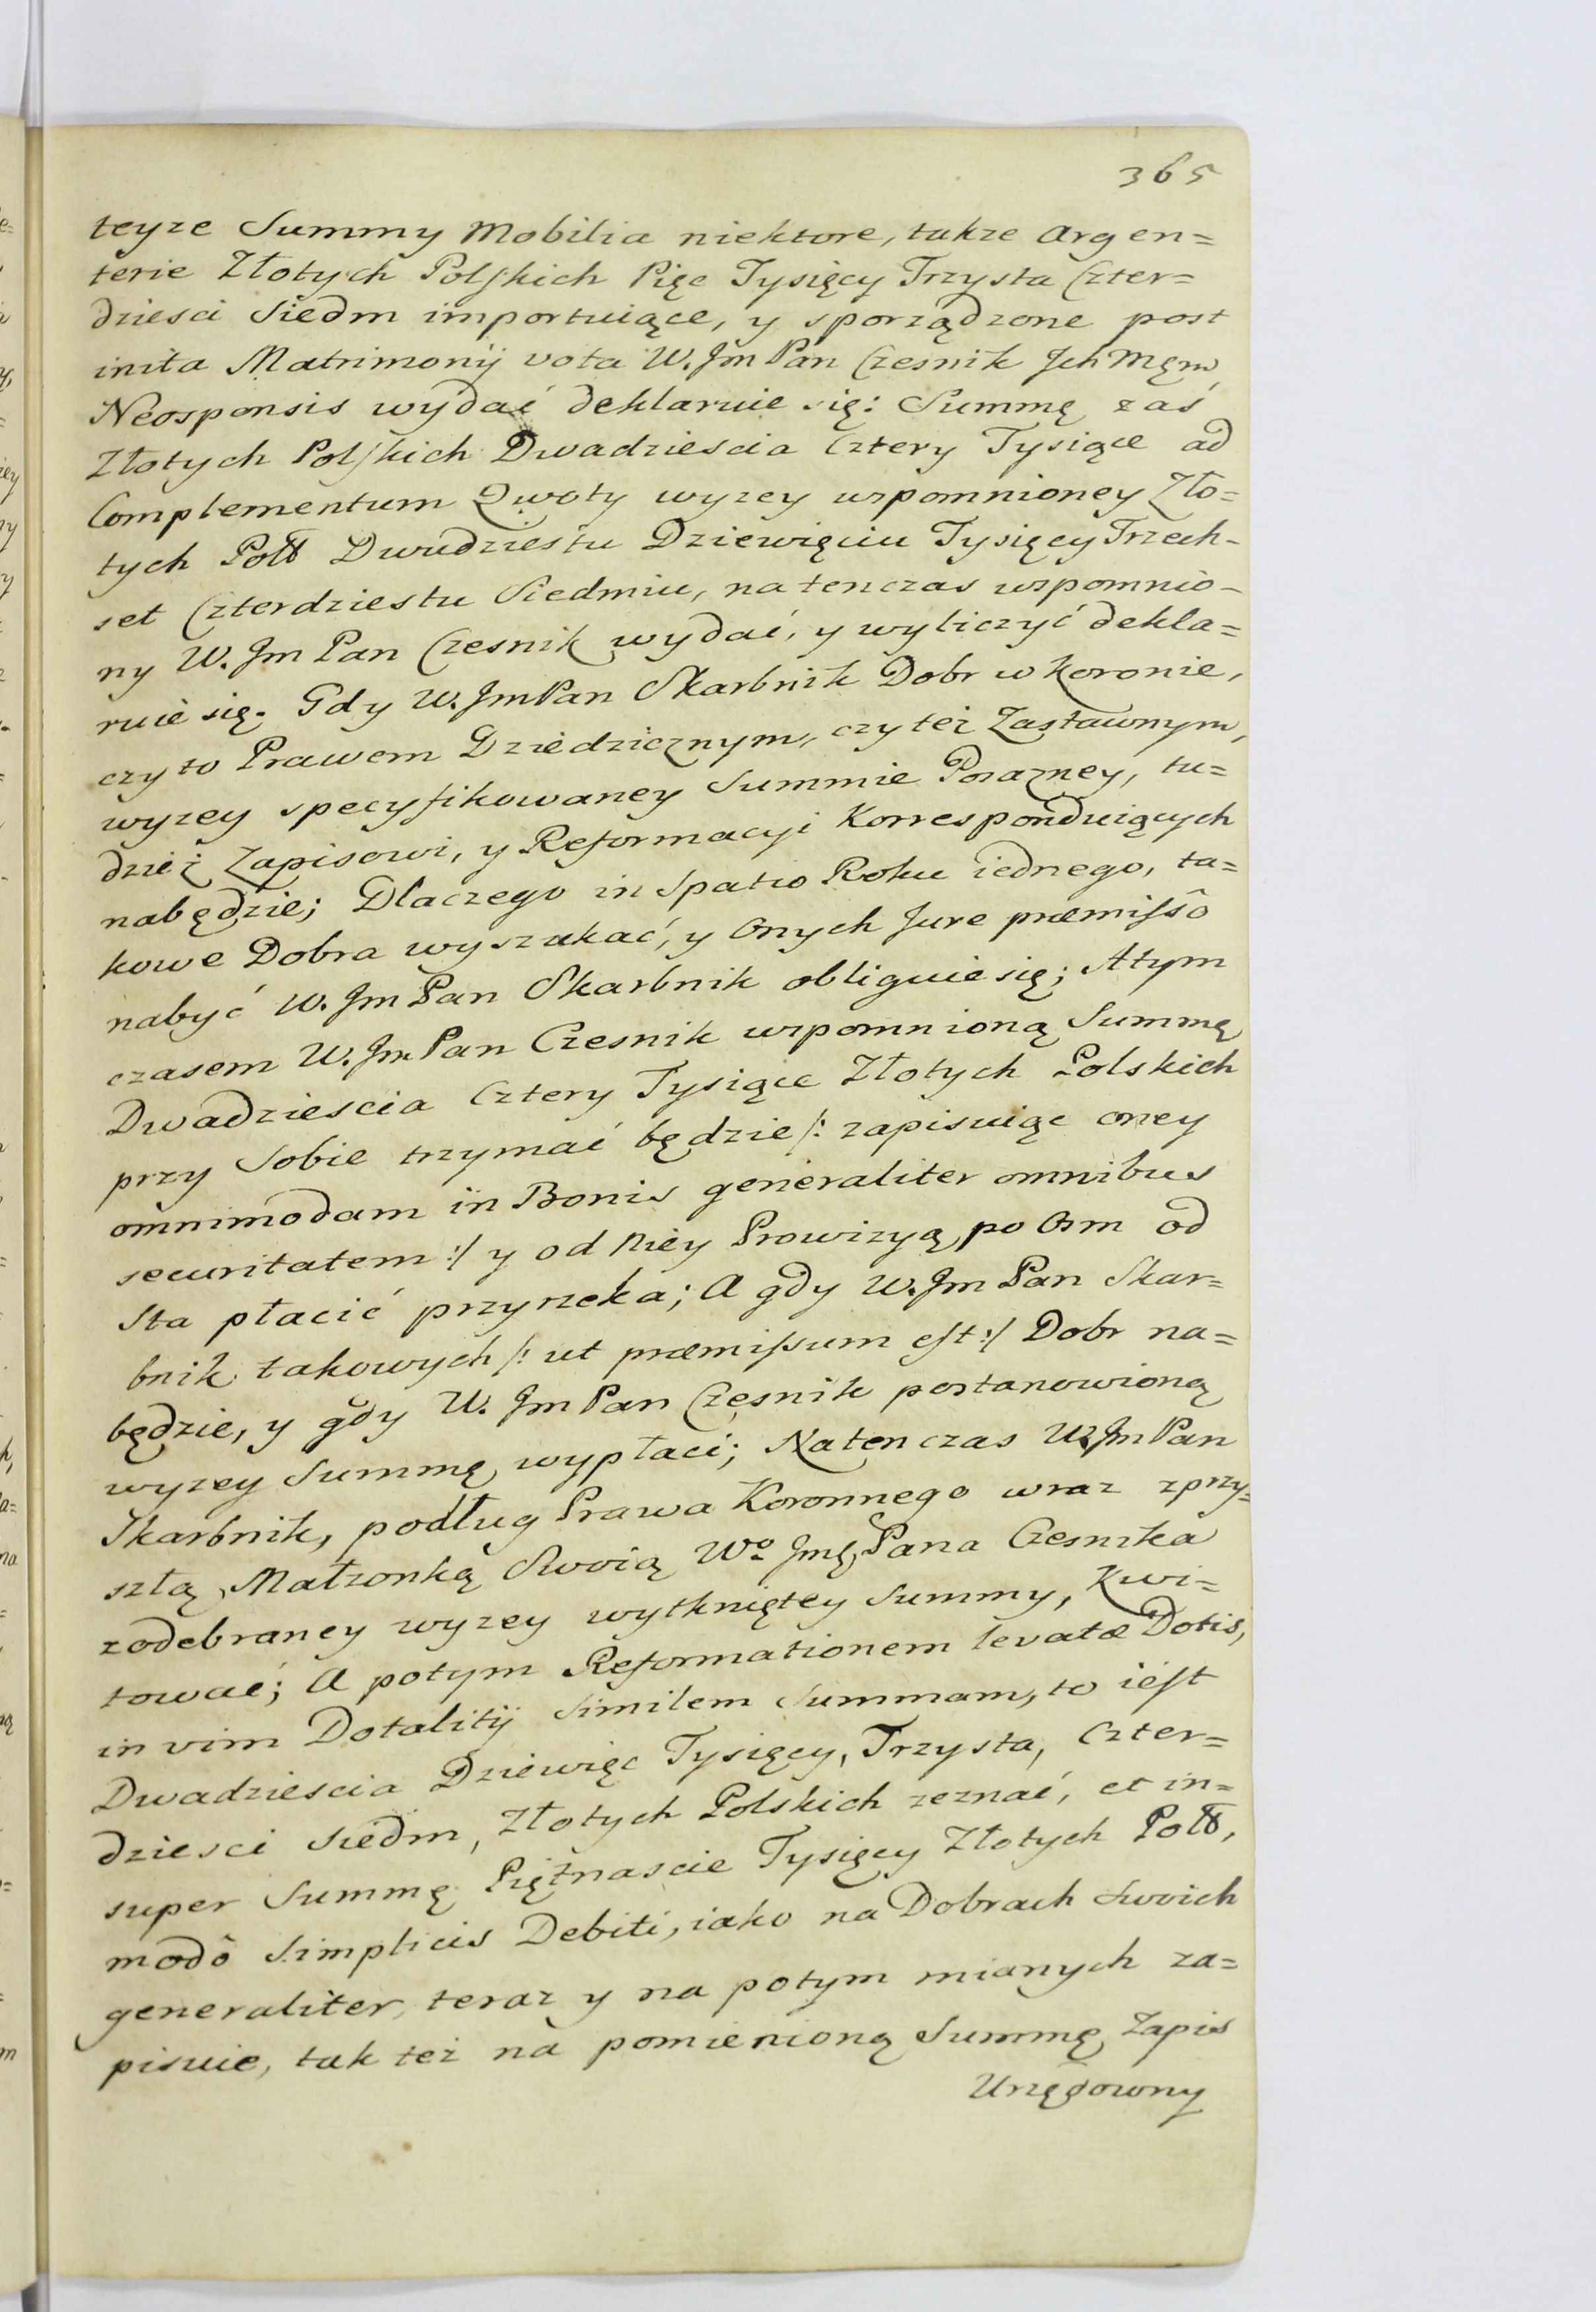 365
teyze Summy Mobilia niektore, takze Argen=
terie Złotych Polskich Pięc Tysięcy Trzysta Czter=
dziesci Siedm importuiące, y sporządzone post
inita Matrimonij vota W. Jm Pan Czesnik Jch Męm
Neosponsis wydać deklaruie się: Summę zaś
Złotych Polskich Dwadziescia Cztery Tysiące ad
Complementum Qwoty wyzey wspomnioney Zło=
tych Poll Dwudziestu Dziewięciu Tysięcy Trzech-
set Czterdziestu Siedmiu, natenczas wspomnio-
ny W. Jm Pan Czesnik wydać, y wyliczyć dekla=
ruie się. Gdy W. Jm Pan Skarbnik Dobr w Koronie,
czy to Prawem Dziedzicznym, czy też Zastawnym,
wyzey specyfikowaney Summie Posazney, tu=
dzież Zapisowi, y Reformacyi Korresponduiących
nabędzie; Dlaczego in Spatio Roku iednego, ta=
kowe Dobra wyszukać, y Onych Jure præmissô
nabyć W. Jm Pan Skarbnik obliguie się; A tym
czasem W. Jm Pan Czesnik wspomnioną Summę
Dwadziescia Cztery Tysiące Złotych Polskich
przy Sobie trzymać będzie /: zapisuiąc oney
omnimodam in Bonis generaliter omnibus
securitatem :/ y od Niey Prowizyą po Osm od
Sta płacić przyrzeka; A gdy W. Jm Pan Skar=
bnik takowych /: ut præmissum est :/ Dobr na=
będzie, y gdy W. Jm Pan Czesnik postanowioną
wyzey Summę wypłaci; Natenczas W. Jm Pan
Skarbnik, podług Prawa Koronnego wraz z przy=
szłą Małzonką Swoią Wo Jmę Pana Czesnika
z odebraney wyzey wytkniętey Summy, Kwi=
tować; A potym Reformationem levatæ Dotis,
in vim Dotalitij Similem Summam, to iest
Dwadziescia Dziewięc Tysięcy, Trzysta, Czter=
dziesci Siedm, Złotych Polskich zeznać, et in=
super Summę Piętnascie Tysięcy Złotych Poll,
modô Simplicis Debiti, iako na Dobrach Swoich
generaliter, teraz y na potym mianych za=
pisuie, tak też na pomienioną Summę Zapis
Urzędowny